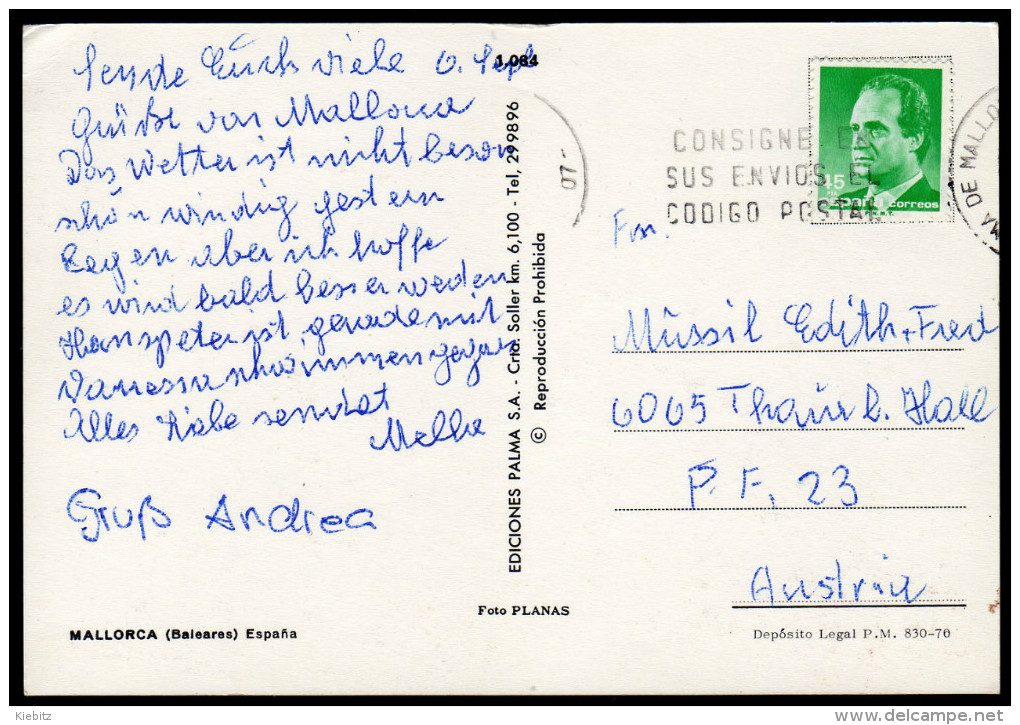 Sende Euch viele
Grüße von Mallorca
Das Wetter ist nicht beson
schön windig gestern
Regen Aber ich hoffe
es wird bald besser werden
Hanspeter ist gerade mit
Vanessa
Alles Liebe
Gruß Andrea
MALLORCA (Baleares) España
1.084
EDICIONES PALMA S.A. - Crta. Soller km. 6,100 - Tel, 29 98 96
© Reproducción Prohibida
Foto PLANAS
07
CONSIGNE EN
SUS ENVIOS EL
CODIGO POSTAL
45
España correos
MA DE MALLO
Fam.
Müssil Edith + Fred
6065 Thaur b. Hall
P.F. 23
Austria
Depósito Legal P.M. 830-76
Kiebitz
www.delcampe.net